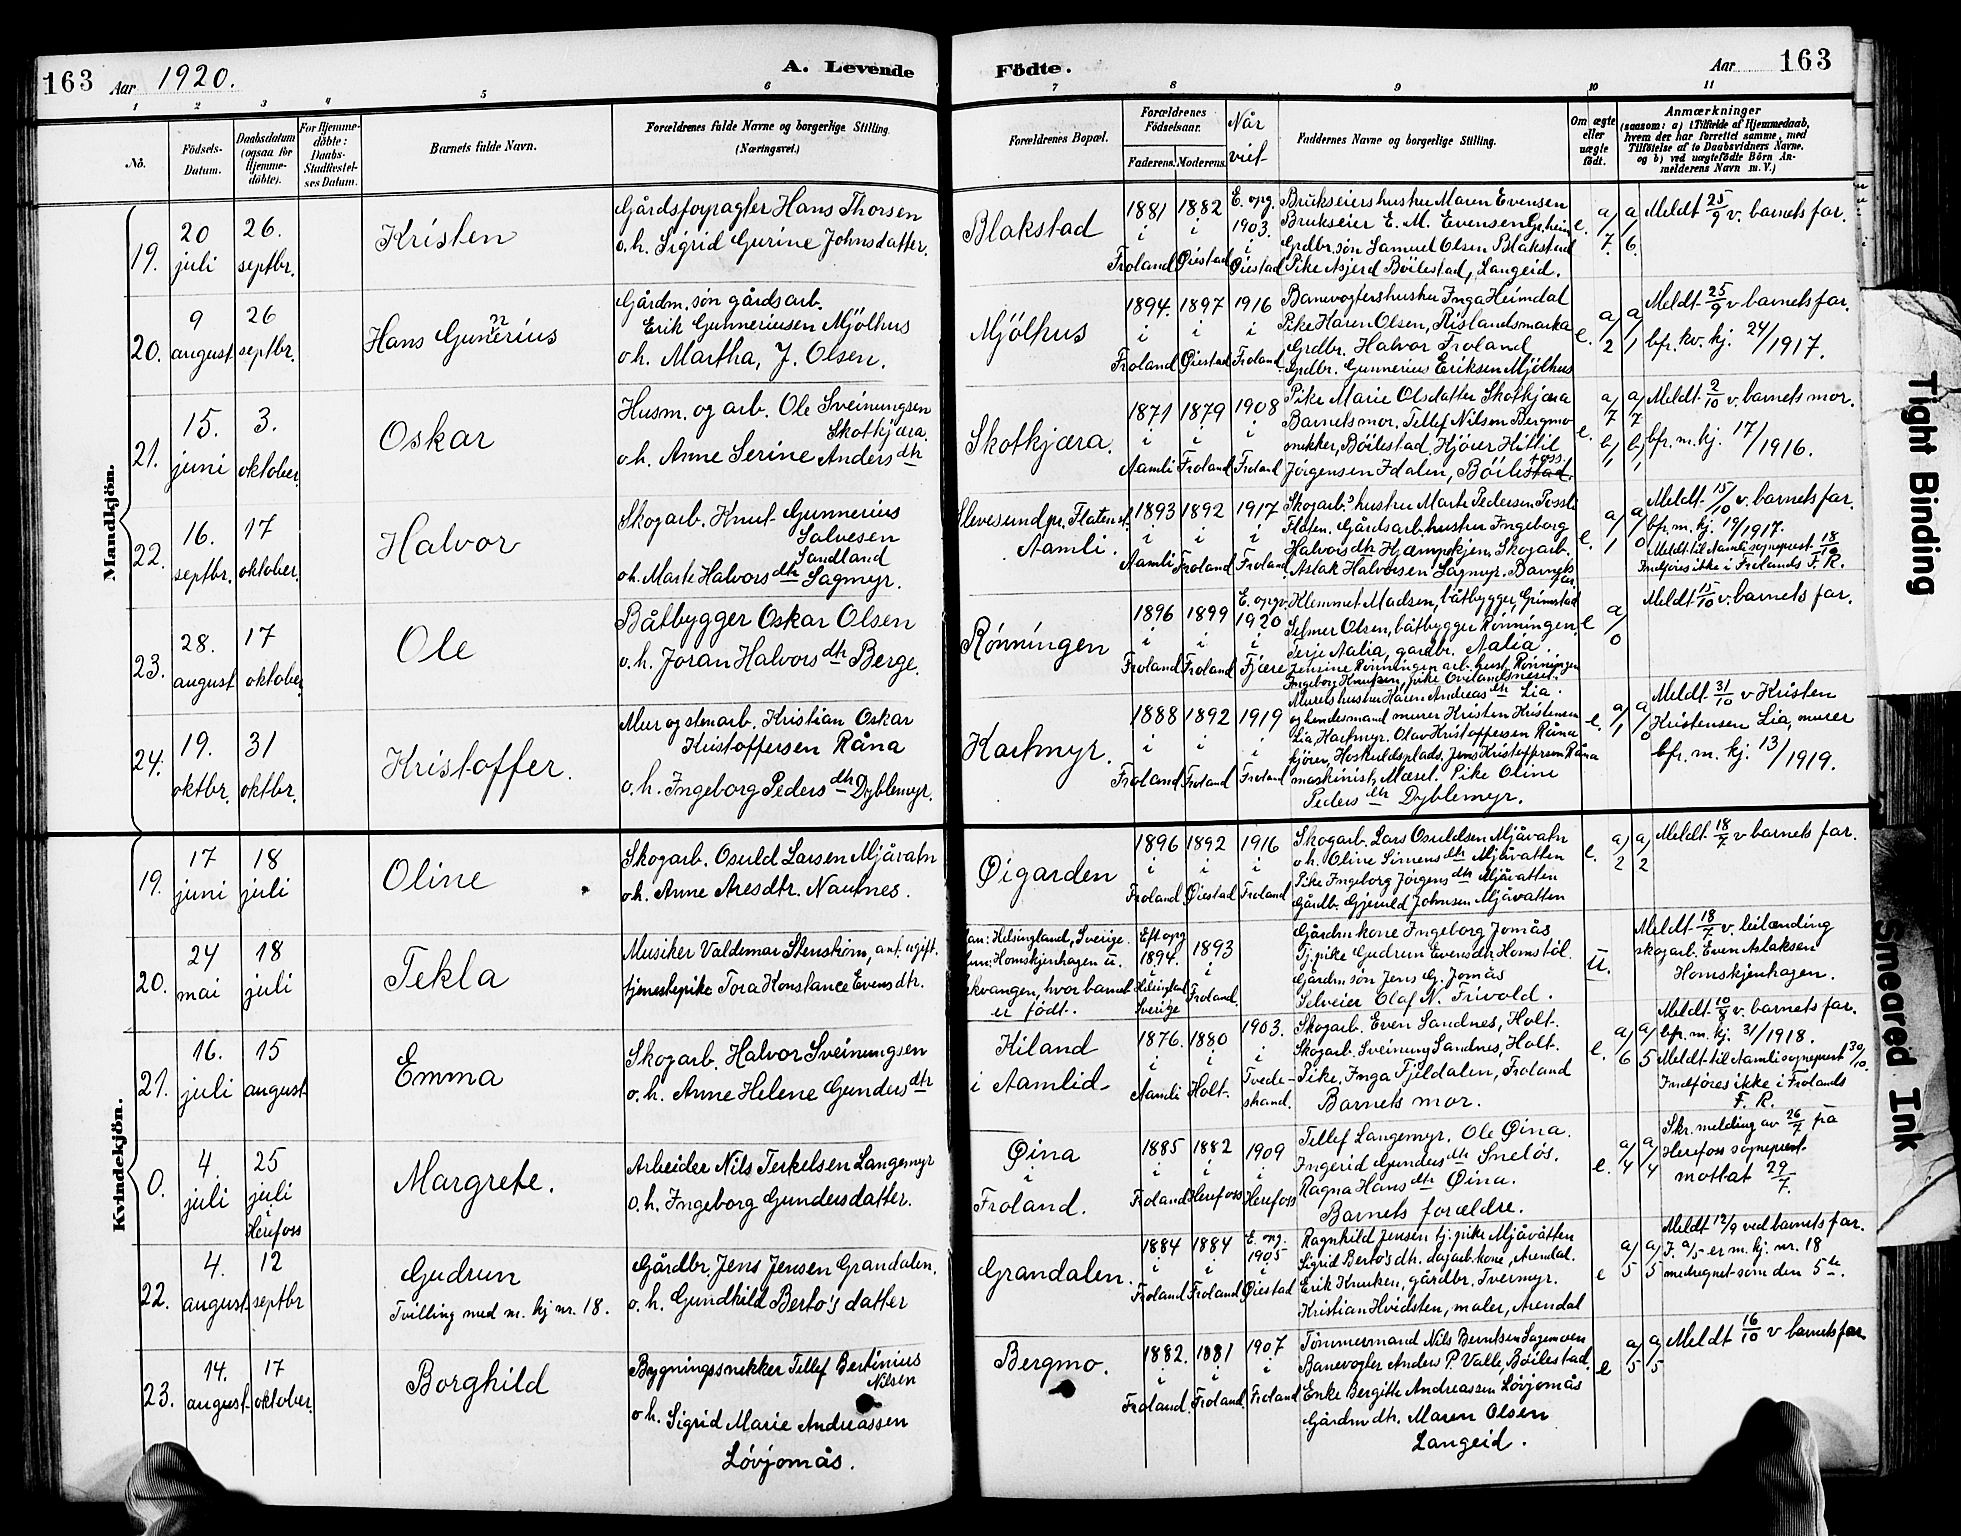 163 Aar 1920. A. Levende
Födte. Aar 163
1 2 3 4 5 6
7 8 9 10 11
No.
Födsels-
Datum.
Daabsdatum
(ogsaa for
Hjemme-
döbte).
For Hjemme-
döbte:
Daabs-
Stadfæstel-
ses Datum.
Barnets fulde Navn.
Forældrenes fulde Navne og borgerlige Stilling.
(Næringsvei.)
Forældrenes Bopæl.
Forældrenes
Födselsaar.
Faderens. Moderens.
Når
viet
Faddernes Navne og borgerlige Stilling.
Om ægte
eller
uægte
födt.
Anmærkninger
(saasom: a) i Tilfælde af Hjemmedaab,
hvem der har forrettet samme, med
Tilföielse af to Daabsvidners Navne.
og b) ved uægtefödte Börn An-
melderens Navn m. V.)
Mandkjön.
19.
20
juli
26.
septbr.
Kristen
Gårdsforpagter Hans Thorsen
o. h. Sigrid Gurine Johnsdatter.
Blakstad
1881
i
Froland
1882
i
Øiestad
E. opg.
1903.
i
Øiestad
Brukseiershustru Maren Evensen
Brukseier E. M. Evensen
Grdbr. søn Samuel Olsen Blakstad
Pike Asjerd Böilestad, Langeid.
e.
a/7.
a/6.
Meldt 25/9 v. barnets far.
20.
9
august
26
septbr.
Hans Gunnerius
n
Gårdm. søn gårdsarb.
Erik Gunneriusen Mjölhus
o h. Martha, J. Olsen.
Mjölhus
1894.
i
Froland
1897
i
Øiestad
1916
i
Froland
Banevogtershustru Inga Heimdal
Pike Karen Olsen, Rislandsmarka
Grdbr. Halvor Froland
Grdbr. Gunnerius Eriksen Mjölhus
e.
a/2
a/1
Meldt 25/9 v barnets far.
bfr. kv. kj. 24/1917.
21.
15.
juni
3.
oktober.
Oskar
Husm. og arb. Ole Sveinungsen
Skotkjæra.
o h. Anne Serine Andersdtr
Skotkjæra.
1871
i
Aamli
1879
i
Froland
1908
i
Froland
Pike Marie Olsdatter Skotkjæra
Barnets mor. Tellef Nilsen Bergmo
snekker, Böilestad. Kjörer Kittil
Jörgensen Fdalen, Böilestad.
e.
a/7
b/1
a/7
b/1
Meldt 2/10 v. barnets mor.
bfr. m. kj. 17/1916.
22.
16.
septbr.
17
oktober.
Halvor
Skogarb. Knut Gunnerius
Salvesen
Sandland
o. h. Marte Halvorsdtr Sagmyr.
Aamli.
1893
i
Aamli
1892
i
Froland
1917
i
Froland
Skogarb. hustru Marte Pedersen
Flaten. Gårdsarb. hustru Ingeborg
Halvorsdtr Kjæmpekjen. Skogarb.
Aslak Halvorsen Sagmyr. Barnets
far
e.
a/1
a/0
Meldt 15/10 v. barnets far.
bfr. m. kj. 19/1917.
Meldt til Aamli sogneprest 18/10
Indføres ikke i Frolands F. R.
23.
28.
august
17
oktober
Ole
Båtbygger Oskar Olsen
o. h. Joran Halvorsdtr Berge.
Rönningen
1896
i
Froland
1899
i
Froland
E. opg.
1920
i
Fjære
Klemmet Madsen, båtbygger, Grimstad
Selmer Olsen, båtbygger Rönningen.
Terje Aalia, gardbr. Aalia.
Jensine Rönningen arb. hust. Rönningen
Ingeborg Knutsen, pike Ovelandsneset.
e
a/0
Meldt 15/10 v. barnets far.
24.
19.
oktbr.
31
oktbr.
Kristoffer.
Mur og stenarb. Kristian Oskar
Kristoffersen Råna
o. h. Ingeborg Pedersdtr Dyblemyr.
Kartmyr.
1888
i
Froland
1892
i
Froland
1919
i
Froland
Murers hustru Karen Andreasdtr Lia.
og hendes mand murer Kristen Kristensen
Lia, Hartmyr. Olav Kristoffersen Råna
kjörer, Heskuldsplads, Jens Kristoffersen Råna
maskinist, Mæsel. Pike Oline
Pedersdtr Dyblemyr.
e.
a/1
a/0
Meldt 31/10 v Kristen
Kristensen Lia, murer
bfr. m. kj. 13/1919.
Kvindekjön.
19.
17
juni
18
juli
Oline
Skogarb. Osuld Larsen Mjåvatn
o h. Anne Aresdtr. Nautnes.
Øigarden
1896
i
Froland.
1892
i
Øiestad
1916
i
Froland
Skogarb. Lars Osuldsen Mjåvatn
o h. Oline Simensdtr Mjåvatten
Pike Ingeborg Jörgensdtr Mjåvatten
Gårdb. Gjeruld Johnsen Mjåvatten
e.
a/2
a/2
Meldt 18/7 v barnets far.
20.
24
mai
18
juli
Tekla
Musiker Valdemar Stenström, ant. ugift.
tjenestepike Tora Konstance Evensdtr.
Helsingland, Sverige.
Homskjenhagen
hvor barnet
er født.
Eft opg
1894.
i
Helsingland
Sverige
1893
i
Froland.
Gårdm kone Ingeborg Jomås
Tj. pike Gudrun Evensdtr Homstöl.
Gårdm søn Jens G. Jomås
Selveier Olaf N. Trivold.
u.
Meldt 18/7 v. leilænding
skogarb. Even Aslaksen
Homskjenhagen.
21.
16.
juli
15
august
Emma
Skogarb. Halvor Sveinungsen
o. h. Anne Helene Gundersdtr
Kiland
i Aamlid
1876.
i
Aamli
1880
i
Holt.
1903.
i
Tvede-
strand.
Skogarb. Even Sandnes, Holt.
Skogarb. Sveinung Sandnes, Holt.
Pike. Inga Fjeldalen, Froland
Barnets mor.
e.
a/6
a/5
Meldt 10/8 v. barnets far.
bfr. m. kj. 31/1918.
Meldt til Aamli sogneprest 30/10.
Indføres ikke i Frolands
F. R.
0.
4.
juli
25
juli
i
Herefoss
Margrete.
Arbeider Nils Terkelsen Langemyr
o. h. Ingeborg Gundersdatter.
Øina
i
Froland.
1885
i
Froland
1882
i
Herefoss
1909
i
Herefoss
Tellef Langemyr. Ole Øina.
Ingerid Gundersdtr Sneløs.
Ragna Hansdtr Øina.
Barnets forældre.
e.
a/4
a/4
Skr. melding av 26/7 fra
Herefoss sogneprest.
mottat 29/7.
22.
4.
august
12
septbr
Gudrun
Tvilling med m. kj nr. 18.
Gårdbr. Jens Jensen Grandalen.
o. h. Gundhild Berto's datter
Grandalen.
1884
i
Froland
1884
i
Froland
E. opg.
1905
i
Øiestad
Ragnhild Jensen tj. pike Mjåvatten
Sigrid Berto's dtr. dagarb. kone, Arendal.
Erik Knutsen, gårdbr. Tvermyr.
Kristian Hvidsten, maler, Arendal
e
a/5
a/5
Meldt 12/9 ved barnets far.
I. a/5 er m. kj. nr. 18
medregnet som den 5te.
23.
14.
august
17
oktober.
Borghild
Bygningssnekker Tellef Bertinius
Nilsen
o h. Sigrid Marie Andreassen
Løvjomås.
Bergmo.
1882.
i
Froland.
1881
i
Froland.
1907
i
Froland
Tømmermand Nils Berntsen Sagemoen
Banevogter Anders P. Valle, Böilestad.
Enke Bergitte Andreassen Løvjomås
Gårdm dtr. Maren Olsen
Langeid.
e
a/5
a/5
Meldt 16/10 v barnets far
Tight Binding
Smeared Ink